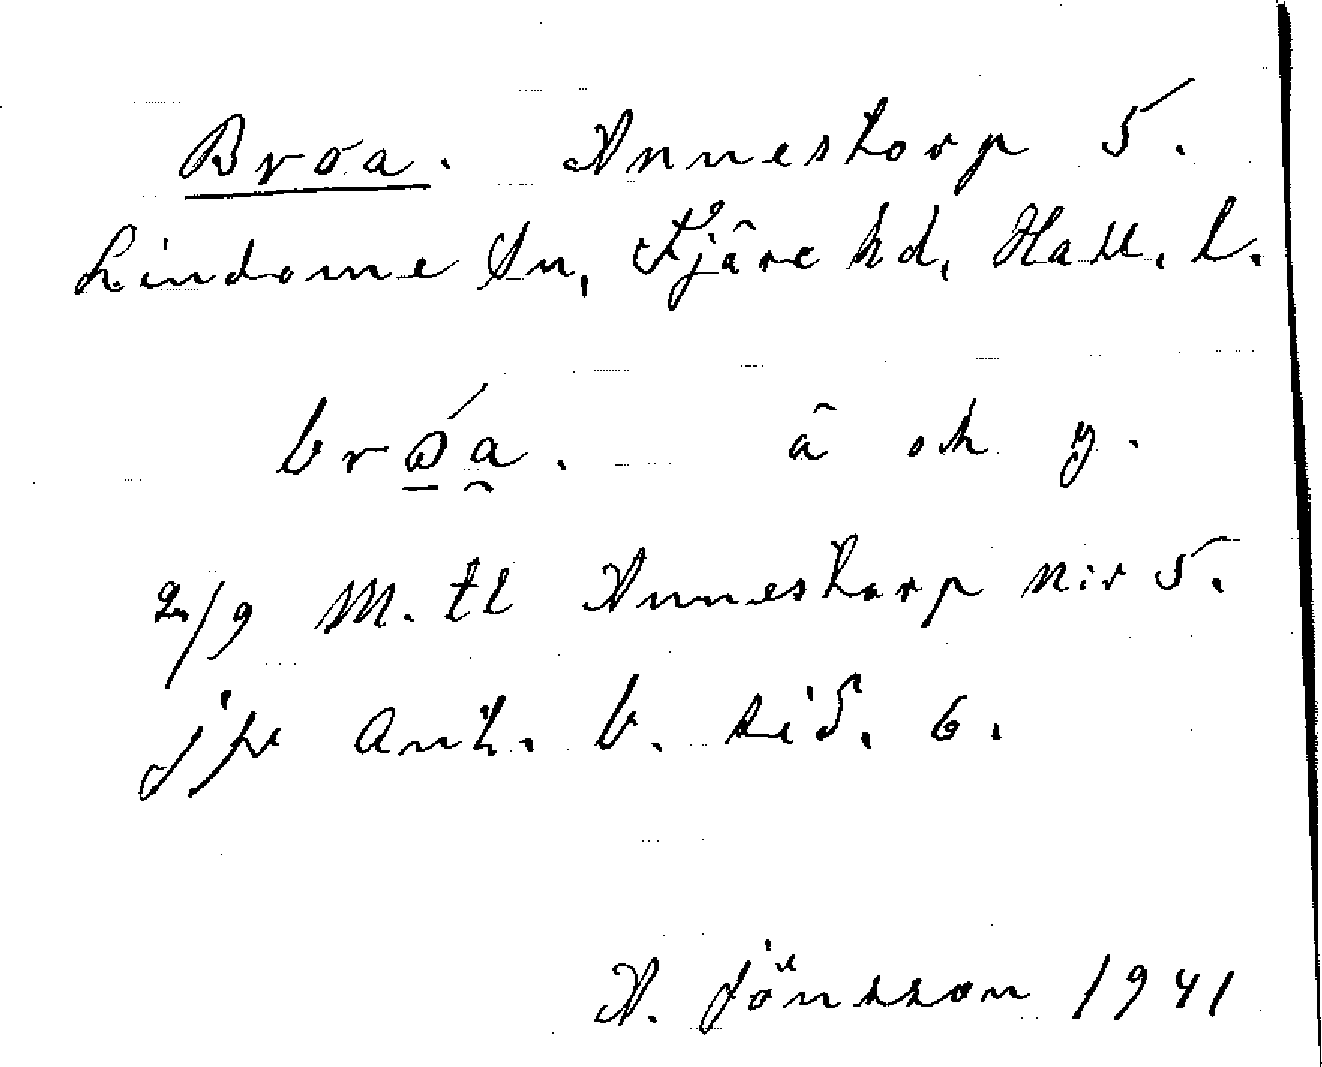 Broa. Annestorp 5.
Lindome Sn, Fjäre hd, Hall. l.
bróa. å och y.
2/9 M. tl Annestorp N:r 5.
jfr Ant. b. sid. 6.
A. Jönsson 1941